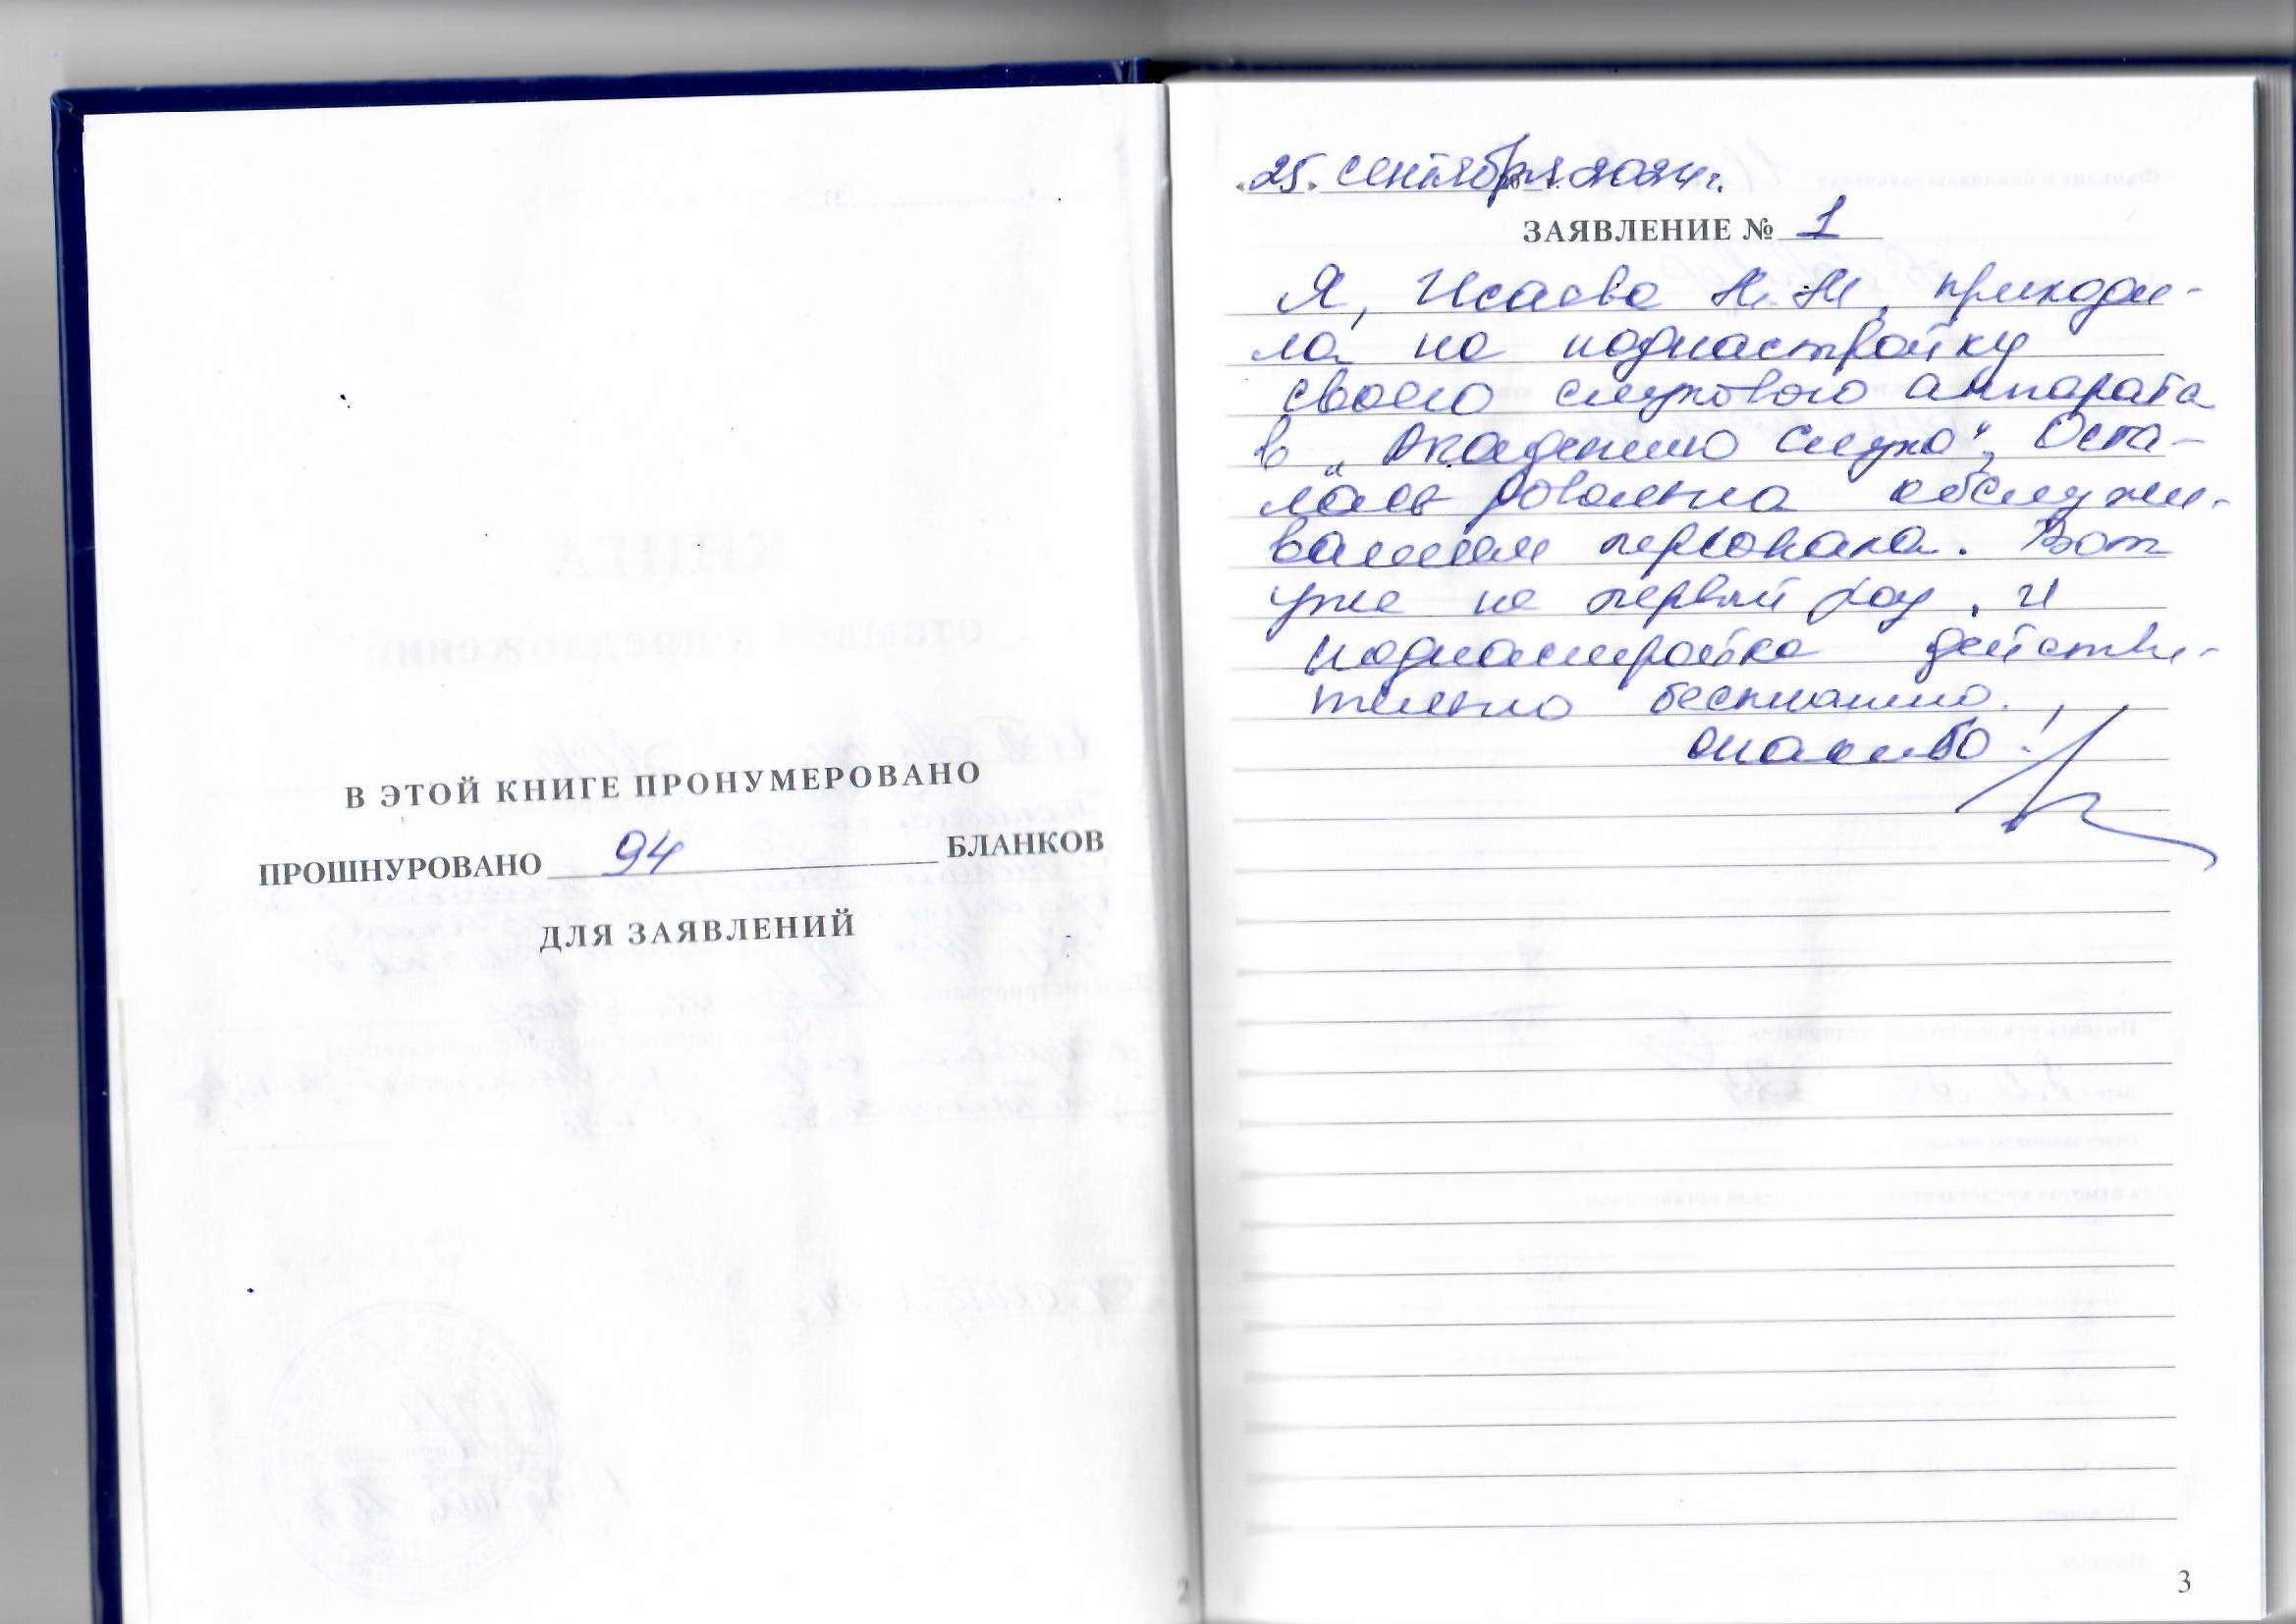 В ЭТОЙ КНИГЕ ПРОНУМЕРОВАНО
ПРОШНУРОВАНО 94 БЛАНКОВ
ДЛЯ ЗАЯВЛЕНИЙ
2
«25» сентября 2024 г.
ЗАЯВЛЕНИЕ № 1
Я, Исаева Н. М, приходи-
ла на поднастройку
своего слухового аппарата
в „Академию слуха", Оста-
лась довольна обслужи-
ванием персонала. Вот
уже не первый год, и
поднастройка действи-
тельно бесплатно.
спасибо!
3